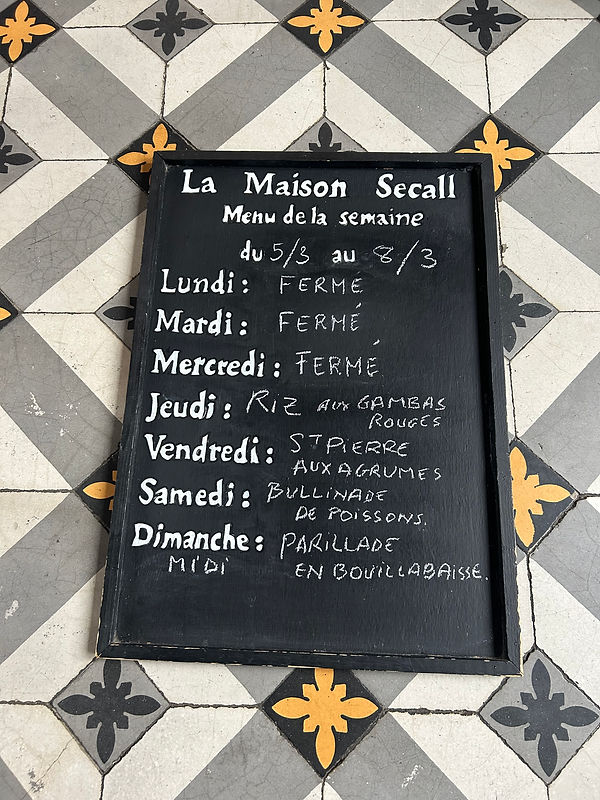 La Maison Secall
Menu de la semaine
du 5/3 au 8/3
Lundi : FERMÉ
Mardi : FERMÉ
Mercredi : FERMÉ
Jeudi : RIZ AUX GAMBAS
ROUGES
Vendredi : ST PIERRE
AUX AGRUMES
Samedi : BULLINADE
DE POISSONS.
Dimanche : PARILLADE
MIDI EN BOUILLABAISSE.